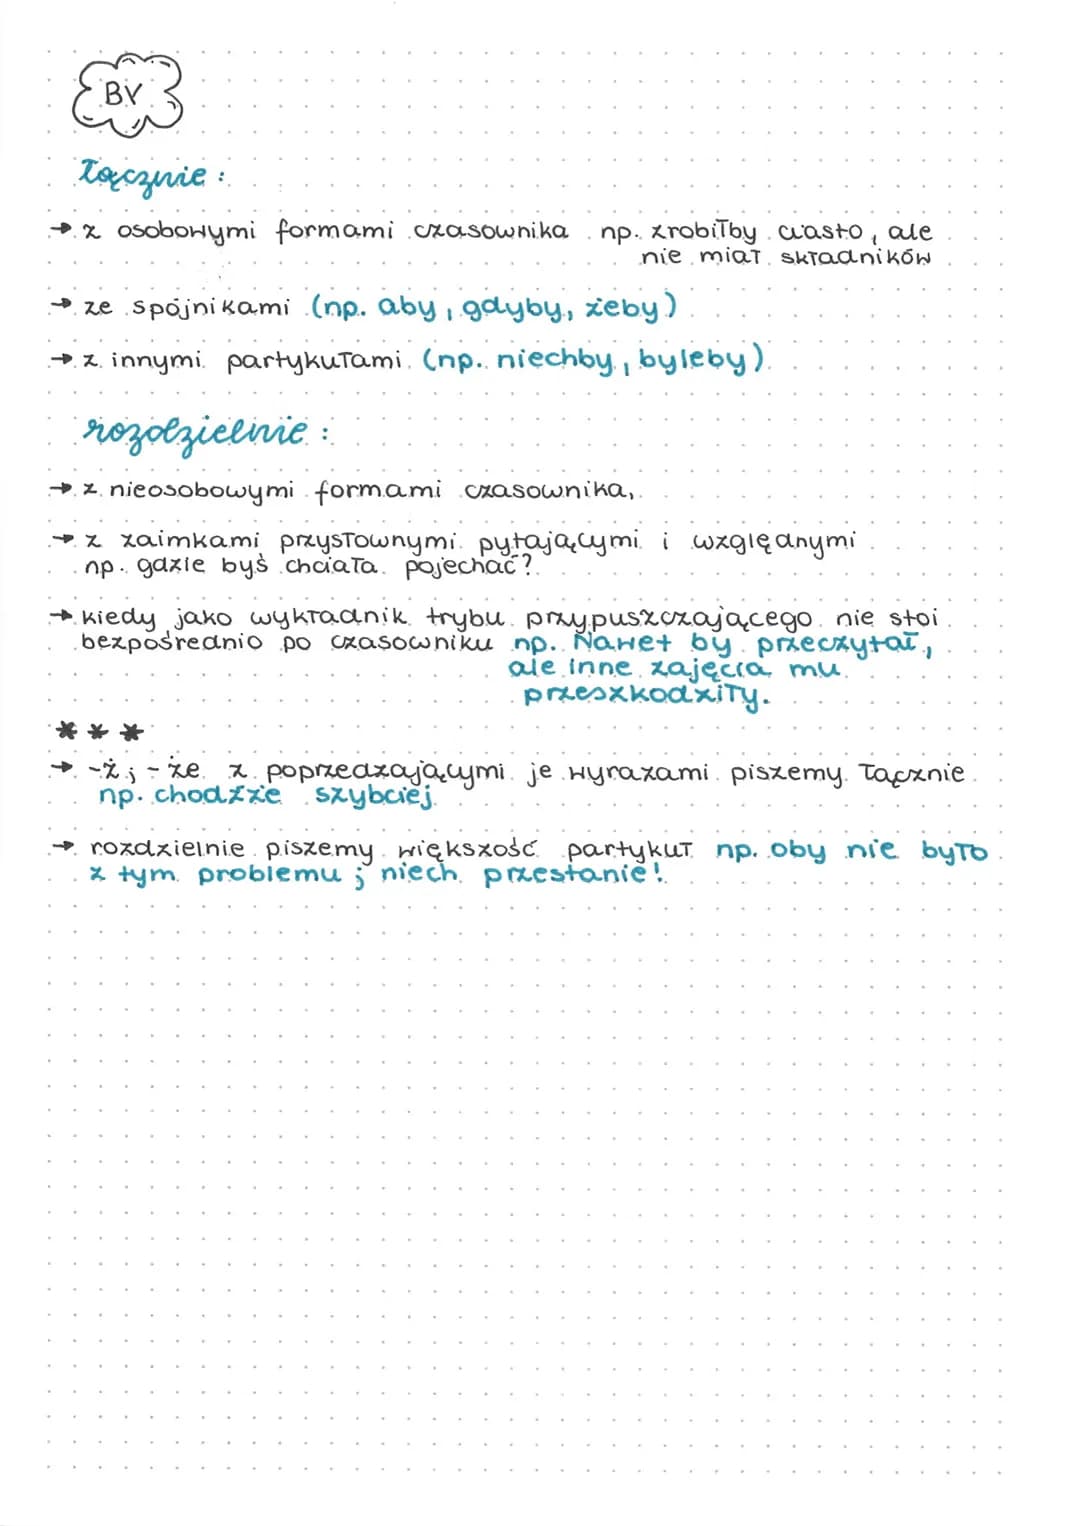 BY
łącznie:
→ z osobowymi formami czasownika np. zrobiłby ciasto, ale
nie miał składników
→ ze spójnikami (np. aby, gdyby, żeby)
→ z innymi partykułami (np. niechby, byleby)
rozdzielnie:
→ z nieosobowymi formami czasownika,
→ z zaimkami przysłownymi pytającymi i względnymi
np. gdzie byś chciała pojechać?
→ kiedy jako wykładnik trybu przypuszczającego nie stoi
bezpośrednio po czasowniku np. Nawet by przeczytał,
ale inne zajęcia mu
przeszkodziły.
***
→ -ż; -że z poprzedzającymi je wyrazami piszemy łącznie
np. chodźże szybciej
→ rozdzielnie piszemy większość partykuł np. oby nie było
z tym problemu; niech przestanie!